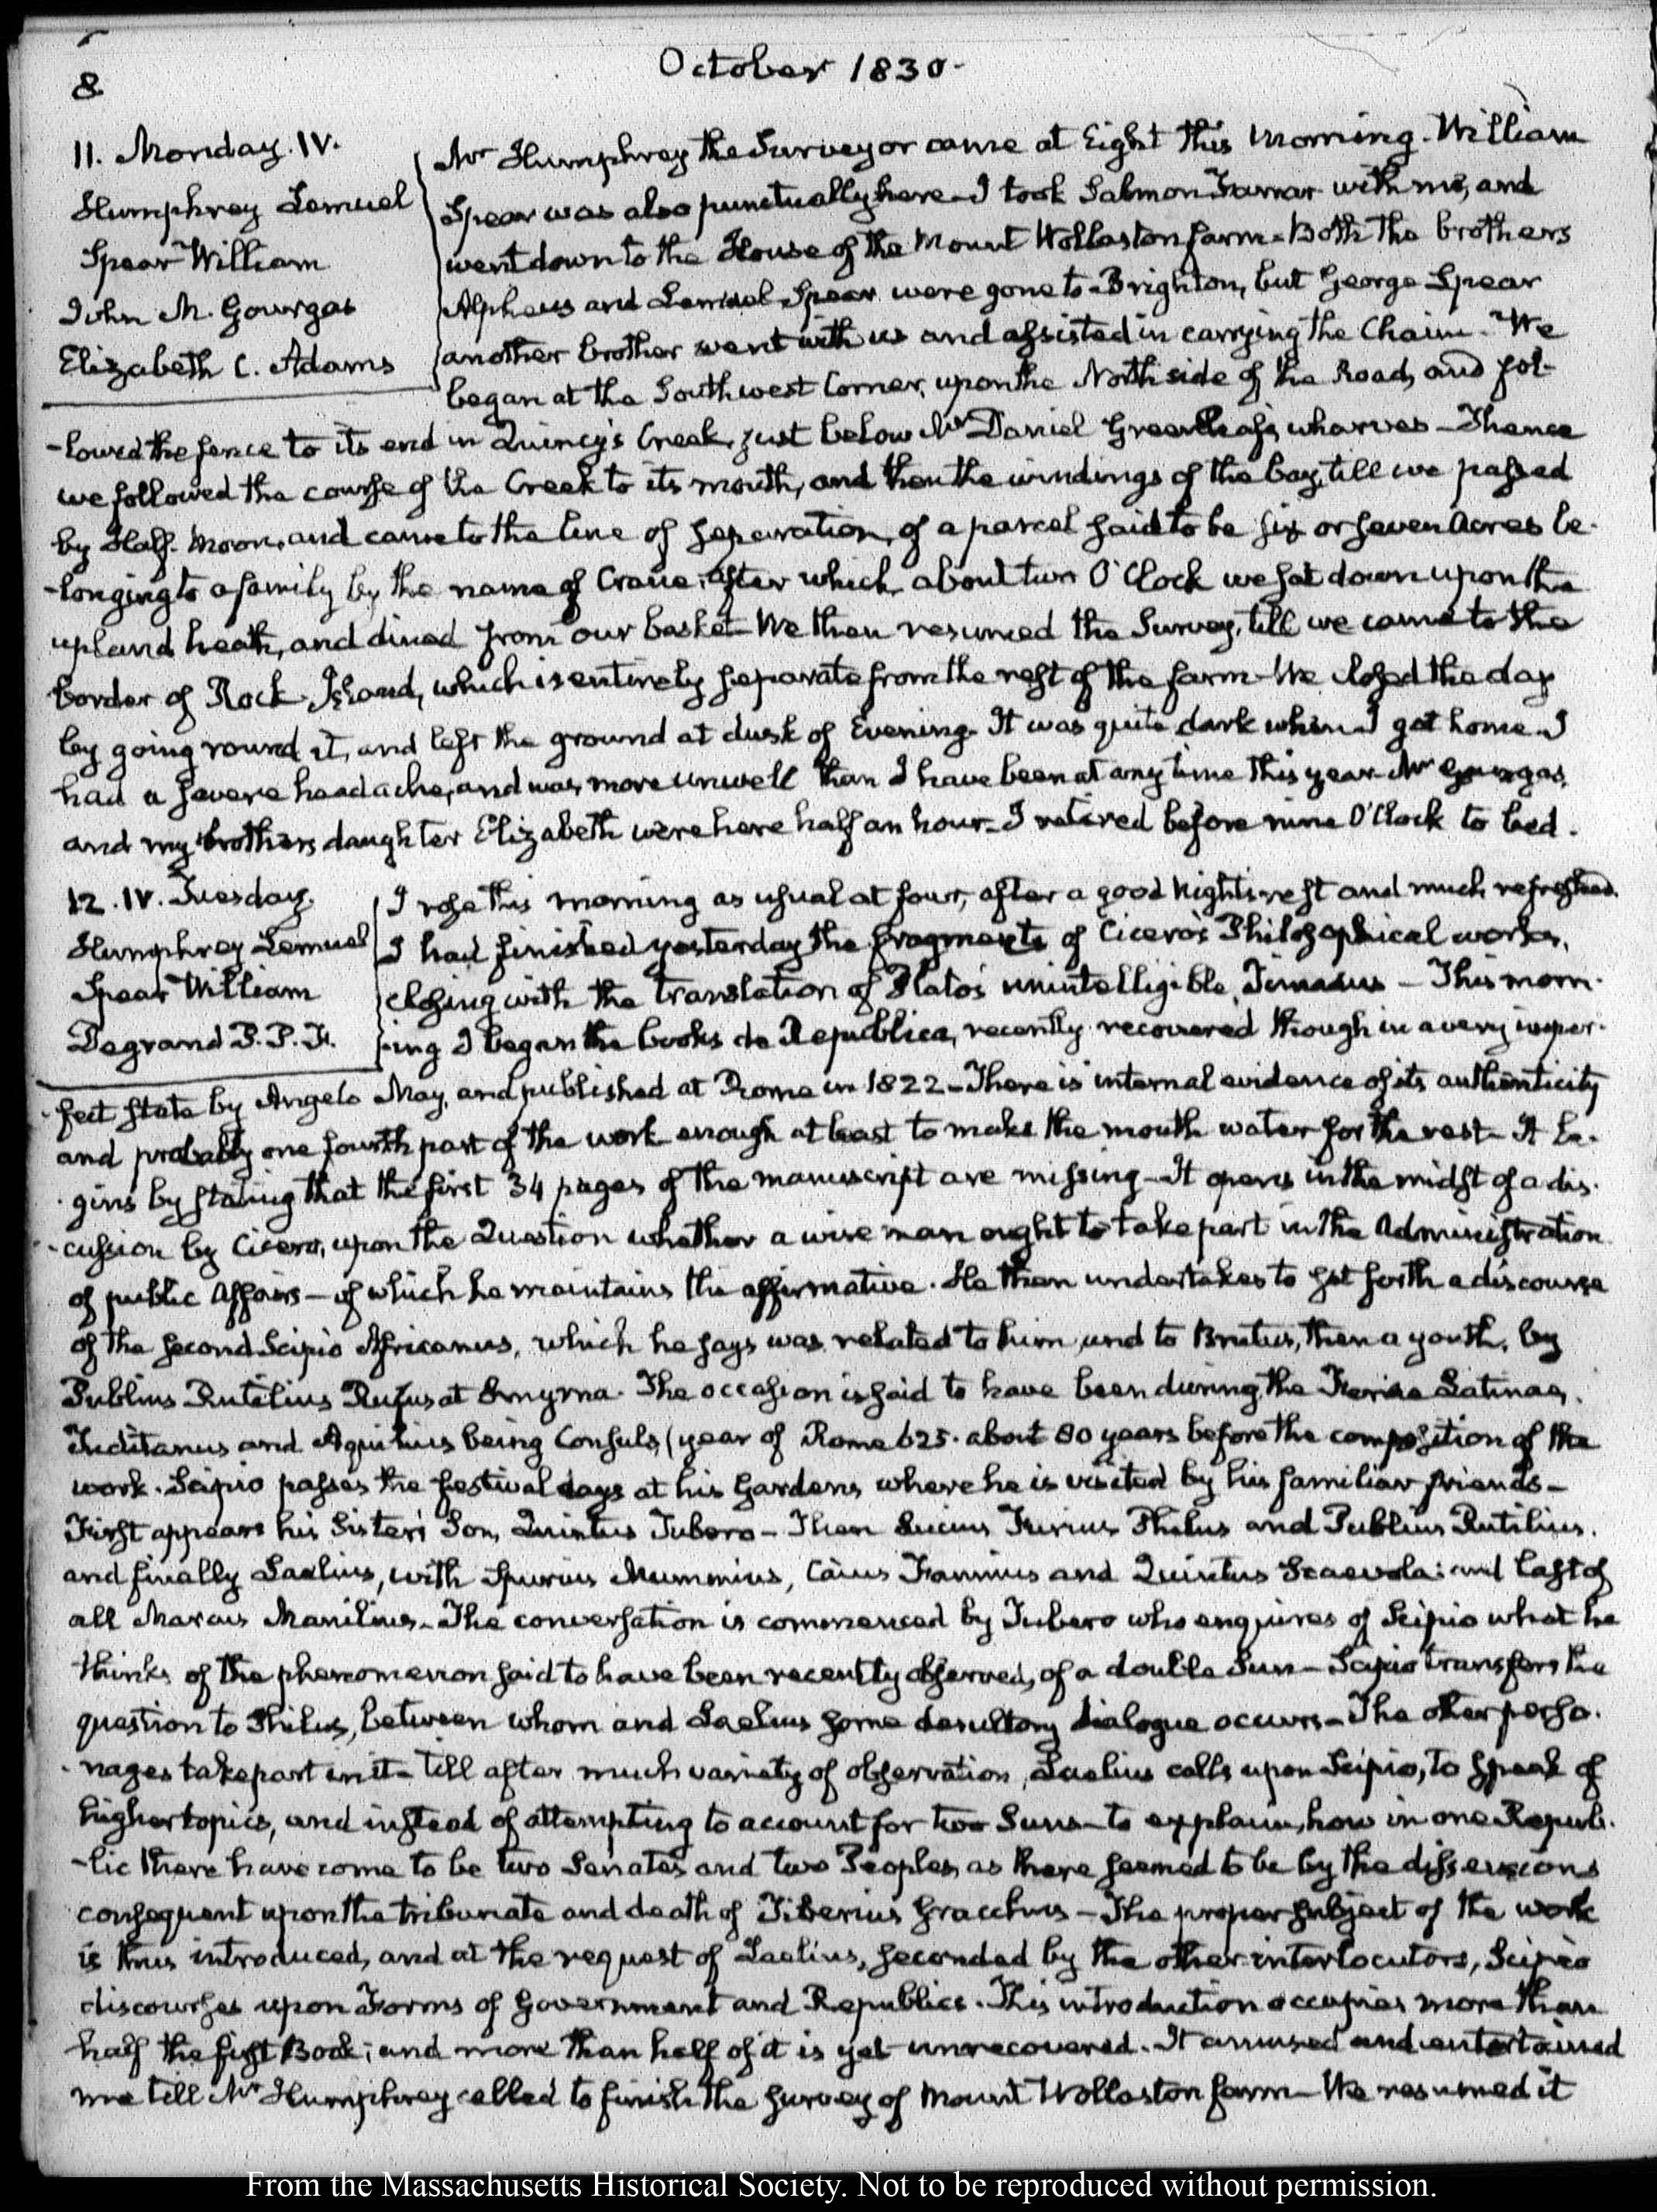 8
October 1830.
11. Monday. IV.
Humphrey Lemuel
Spear William
John M. Gourgas
Elizabeth C. Adams
Mr Humphrey the Surveyor came at Eight this morning. William
Spear was also punctually here. I took Salmon Farrar with me, and
went down to the House of the Mount Wollaston farm. Both the brothers
Alpheus and Lemuel Spear were gone to Brighton, but George Spear
another brother went with us and assisted in carrying the Chain. We
began at the Southwest Corner, upon the North side of the Road, and fol-
-lowed the fence to its end in Quincy's Creek, just below Mr Daniel Greenleaf's wharves - Thence
we followed the course of the Creek to its mouth, and then the windings of the bay, till we passed
by Half-Moon, and came to the line of separation, of a parcel said to be six or seven Acres be-
-longing to a family by the name of Crane; after which, about two O'Clock we sat down upon the
upland heath, and dined from our basket - We then resumed the Survey, till we came to the
border of Rock Island, which is entirely separate from the rest of the farm - We closed the day
by going round it, and left the ground at dusk of Evening. It was quite dark when I got home. I
had a severe headache, and was more unwell than I have been at any time this year. Mr Gourgas,
and my brother's daughter Elizabeth were here half an hour. I retired before nine O'Clock to bed.
12. IV. Tuesday.
Humphrey Lemuel
Spear William
Degrand P. P. F.
I rose this morning as usual at four, after a good Night's rest and much refreshed.
I had finished yesterday the fragments of Cicero's Philosophical works,
closing with the translation of Plato's unintelligible, Timaeus - This morn-
-ing I began the books de Republica, recently recovered though in a very imper-
-fect state by Angelo May, and published at Rome in 1822 - There is internal evidence of its authenticity
and probably one fourth part of the work enough at least to make the mouth water for the rest - It be-
-gins by stating that the first 34 pages of the manuscript are missing - It opens in the midst of a dis-
-cussion by Cicero, upon the Question whether a wise man ought to take part in the Administration
of public Affairs - of which he maintains the affirmative. He then undertakes to set forth a discourse
of the second Scipio Africanus, which he says was related to him, and to Brutus, then a youth, by
Publius Rutilius Rufus at Smyrna. The occasion is said to have been during the Feriae Latinae,
Tuditanus and Aquilius being Consuls, (year of Rome 625. about 80 years before the composition of the
work. Scipio passes the festival days at his Gardens, where he is visited by his familiar friends -
First appears his Sister's Son, Quintus Tubero - Then Lucius Furius Philus and Publius Rutilius.
and finally Laelius, with Spurius Mummius, Caius Fannius and Quintus Scaevola: and last of
all Marcus Manilius. The conversation is commenced by Tubero who enquires of Scipio what he
thinks of the phenomenon said to have been recently observed, of a double Sun - Scipio transfers the
question to Philus, between whom and Laelius some desultory dialogue occurs - The other perso-
-nages take part in it - till after much variety of observation, Laelius calls upon Scipio, to speak of
higher topics, and instead of attempting to account for two Suns - to explain, how in one Repub-
-lic there have come to be two Senates and two Peoples, as there seemed to be by the dissensions
consequent upon the tribunate and death of Tiberius Gracchus - The proper subject of the work
is thus introduced, and at the request of Laelius, seconded by the other interlocutors, Scipio
discourses upon Forms of Government and Republics. This introduction occupies more than
half the first Book; and more than half of it is yet unrecovered. It amused and entertained
me till Mr Humphrey called to finish the survey of Mount Wollaston farm - We resumed it
From the Massachusetts Historical Society. Not to be reproduced without permission.